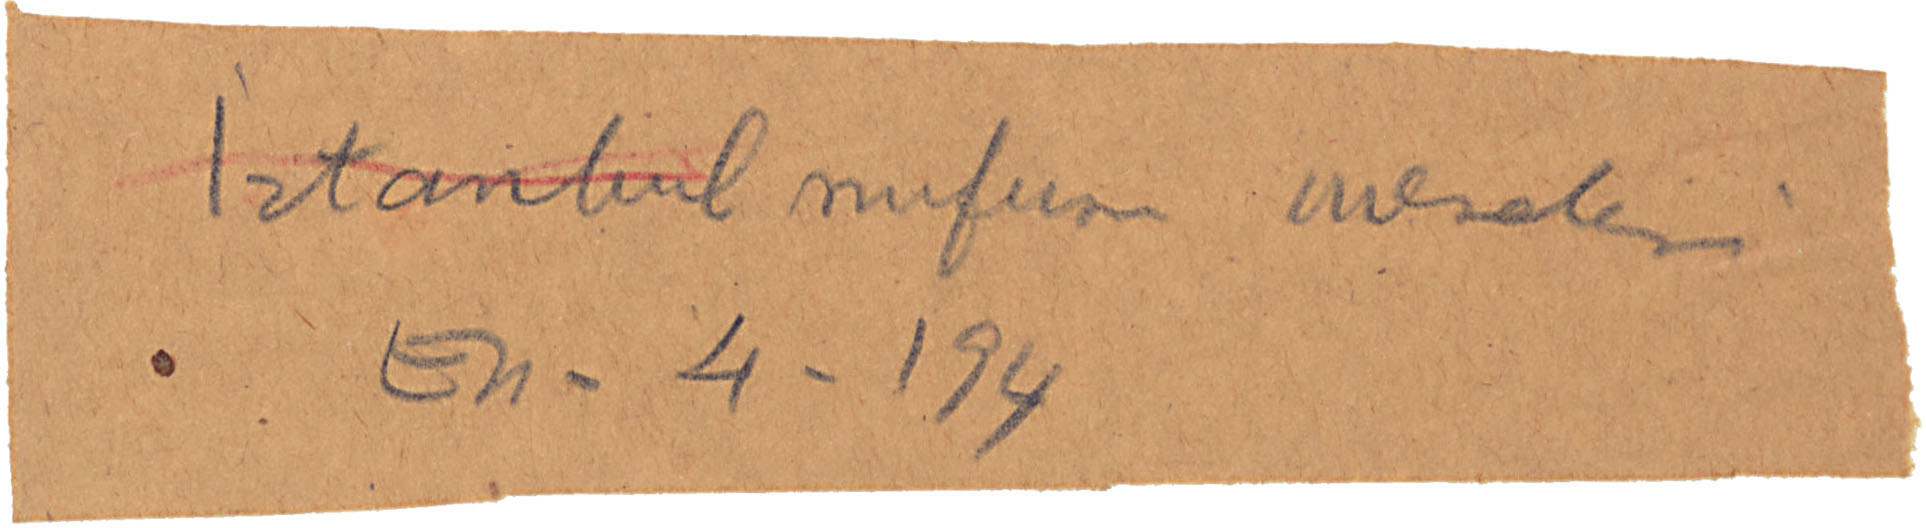 İstanbul nufusu meselesi
En - 4 - 194